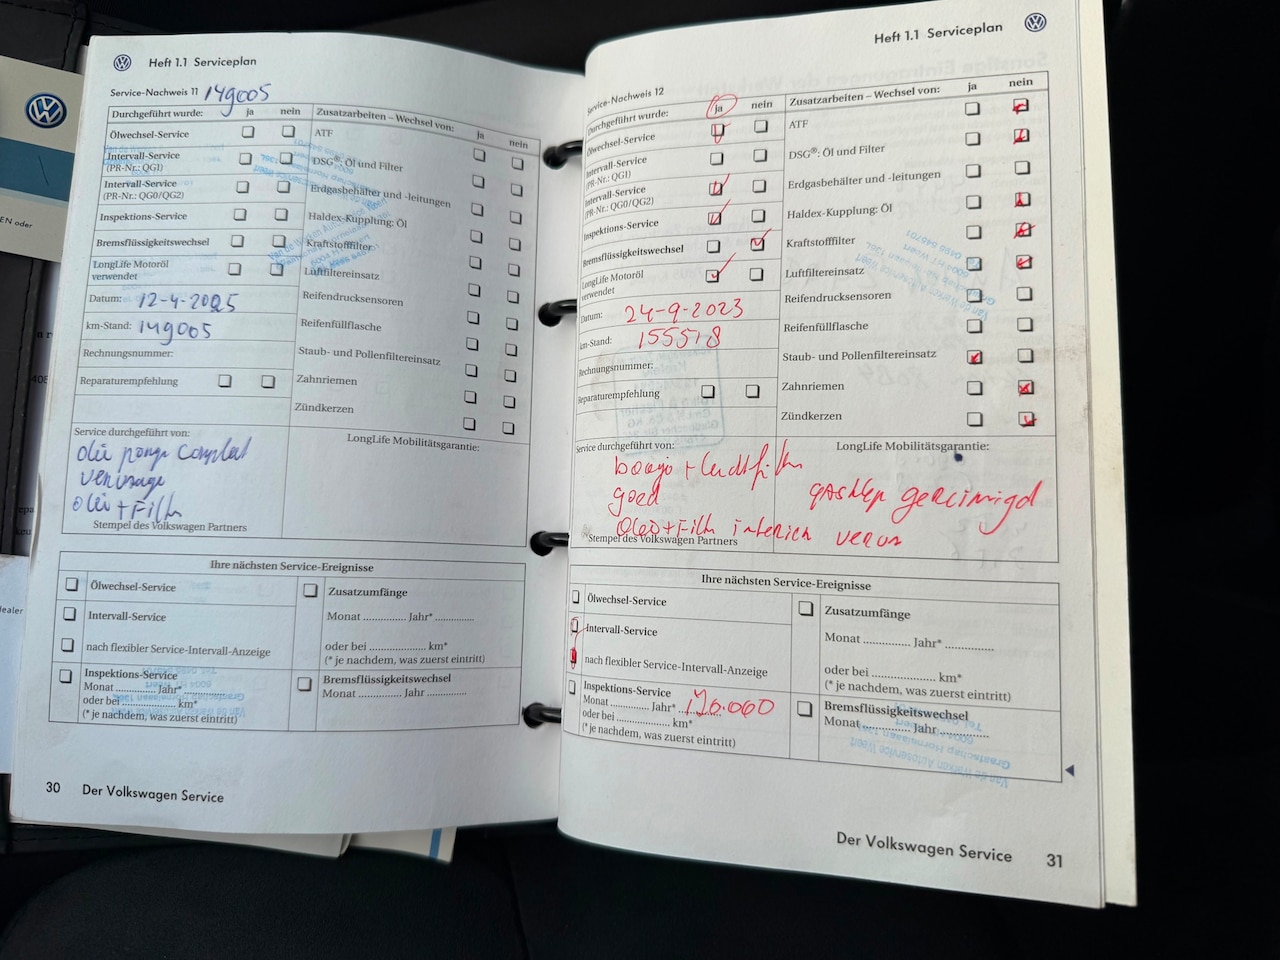 EN oder
ealer
Heft 1.1 Serviceplan
Service-Nachweis 11 149005
Durchgeführt wurde: ja nein
Ölwechsel-Service
Intervall-Service
(PR-Nr.: QG1)
Intervall-Service
(PR-Nr.: QG0/QG2)
Inspektions-Service
Bremsflüssigkeitswechsel
LongLife Motoröl
verwendet
Datum: 12-4-2025
km-Stand: 149005
Rechnungsnummer:
Reparaturempfehlung
Zusatzarbeiten – Wechsel von: ja nein
ATF
DSG®: Öl und Filter
Erdgasbehälter und -leitungen
Haldex-Kupplung: Öl
Kraftstofffilter
Luftfiltereinsatz
Reifendrucksensoren
Reifenfüllflasche
Staub- und Pollenfiltereinsatz
Zahnriemen
Zündkerzen
Service durchgeführt von:
olie pomp Compleet
olie + Filter
Stempel des Volkswagen Partners
LongLife Mobilitätsgarantie:
Ihre nächsten Service-Ereignisse
Ölwechsel-Service
Intervall-Service
nach flexibler Service-Intervall-Anzeige
Inspektions-Service
Monat ............ Jahr* ............
oder bei .................. km*
(* je nachdem, was zuerst eintritt)
Zusatzumfänge
Monat ............ Jahr* ............
oder bei .................. km*
(* je nachdem, was zuerst eintritt)
Bremsflüssigkeitswechsel
Monat ............ Jahr ............
30 Der Volkswagen Service
Heft 1.1 Serviceplan
Service-Nachweis 12
Durchgeführt wurde: ja nein
Ölwechsel-Service
Intervall-Service
(PR-Nr.: QG1)
Intervall-Service
(PR-Nr.: QG0/QG2)
Inspektions-Service
Bremsflüssigkeitswechsel
LongLife Motoröl
verwendet
Datum: 24-9-2023
km-Stand: 155518
Rechnungsnummer:
Reparaturempfehlung
Zusatzarbeiten – Wechsel von: ja nein
ATF
DSG®: Öl und Filter
Erdgasbehälter und -leitungen
Haldex-Kupplung: Öl
Kraftstofffilter
Luftfiltereinsatz
Reifendrucksensoren
Reifenfüllflasche
Staub- und Pollenfiltereinsatz
Zahnriemen
Zündkerzen
Service durchgeführt von:
goed
Stempel des Volkswagen Partners
LongLife Mobilitätsgarantie:
Ihre nächsten Service-Ereignisse
Ölwechsel-Service
Intervall-Service
nach flexibler Service-Intervall-Anzeige
Inspektions-Service
Monat ............ Jahr* ............ 170.000
oder bei .................. km*
(* je nachdem, was zuerst eintritt)
Zusatzumfänge
Monat ............ Jahr* ............
oder bei .................. km*
(* je nachdem, was zuerst eintritt)
Bremsflüssigkeitswechsel
Monat ............ Jahr ............
Der Volkswagen Service 31